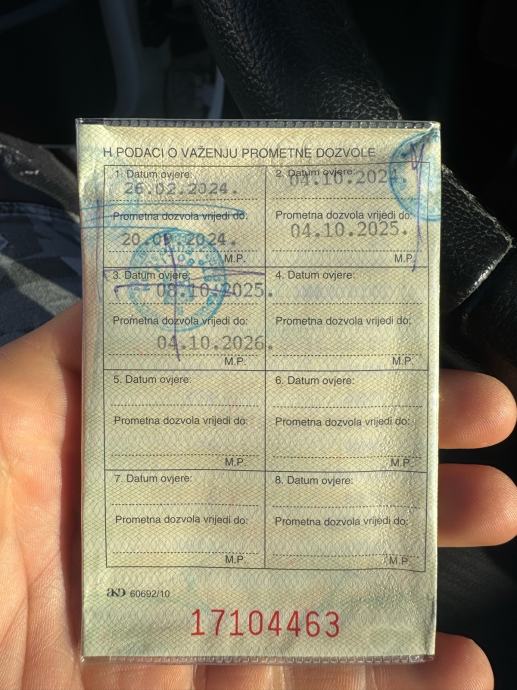 H PODACI O VAŽENJU PROMETNE DOZVOLE
1. Datum ovjere:
26.02.2024.
Prometna dozvola vrijedi do:
20.09.2024.
M.P.
2. Datum ovjere:
04.10.2024.
Prometna dozvola vrijedi do:
04.10.2025.
M.P.
3. Datum ovjere:
08.10.2025.
Prometna dozvola vrijedi do:
04.10.2026.
M.P.
4. Datum ovjere:
Prometna dozvola vrijedi do:
M.P.
5. Datum ovjere:
Prometna dozvola vrijedi do:
M.P.
6. Datum ovjere:
Prometna dozvola vrijedi do:
M.P.
7. Datum ovjere:
Prometna dozvola vrijedi do:
M.P.
8. Datum ovjere:
Prometna dozvola vrijedi do:
M.P.
AKD 60692/10
17104463